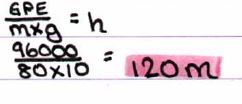 GPE
m×g = h
96000
80×10 = 120m